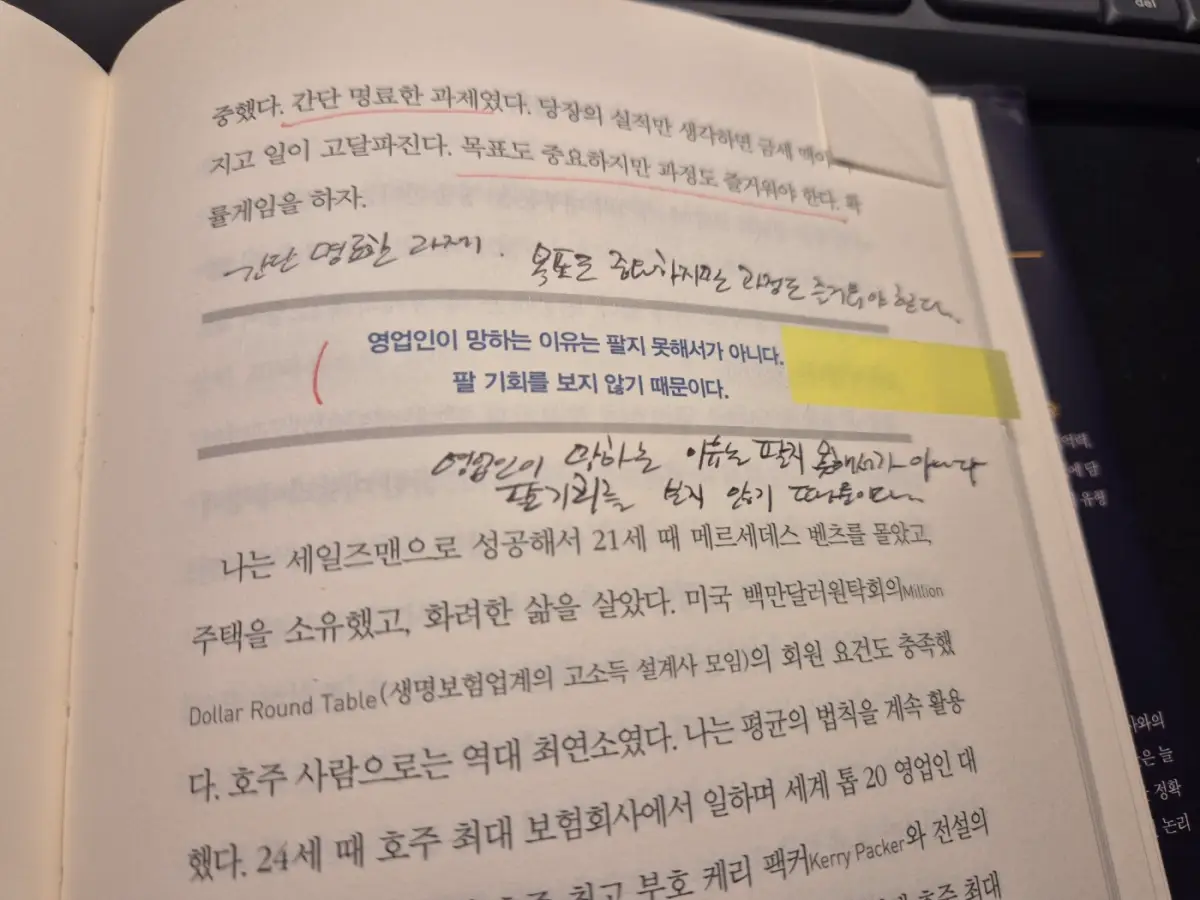 중했다. 간단 명료한 과제였다. 당장의 실적만 생각하면 금세 맥이
지고 일이 고달파진다. 목표도 중요하지만 과정도 즐거워야 한다. 확
률게임을 하자.
간단 명료한 과제. 목표도 중요하지만 과정도 즐거워야 한다..
영업인이 망하는 이유는 팔지 못해서가 아니다.
팔 기회를 보지 않기 때문이다.
영업인이 망하는 이유는 팔지 못해서가 아니다
팔기회를 보지 않기 때문이다..
나는 세일즈맨으로 성공해서 21세 때 메르세데스 벤츠를 몰았고,
주택을 소유했고, 화려한 삶을 살았다. 미국 백만달러원탁회의Million
Dollar Round Table(생명보험업계의 고소득 설계사 모임)의 회원 요건도 충족했
다. 호주 사람으로는 역대 최연소였다. 나는 평균의 법칙을 계속 활용
했다. 24세 때 호주 최대 보험회사에서 일하며 세계 톱 20 영업인 대
최고 부호 케리 팩커Kerry Packer와 전설의
호주 최대
del
역력,
에 담
유형
사와의
은 늘
정확
논리